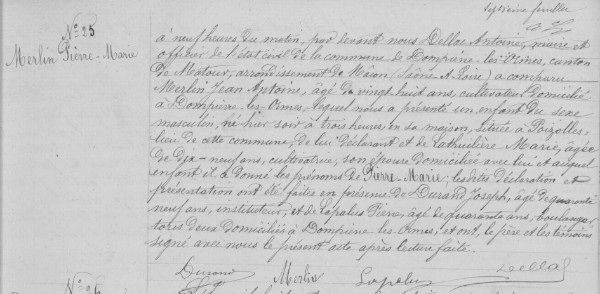 septième feuille
N° 25
Merlin Pierre-Marie
à neuf heures du matin, par devant nous Dellac Antoine, maire et
officier de l'état civil de la commune de Dompierre-les-Ormes, canton
de Matour, arrondissement de Mâcon (Saône-et-Loire) a comparu
Merlin Jean Antoine, âgé de vingt huit ans, cultivateur domicilié
à Dompierre-les-Ormes, lequel nous a présenté un enfant du sexe
masculin, né hier soir à trois heures, en sa maison, située à
lieu de cette commune, de lui déclarant et de Lathuilière Marie, âgée
de dix-neuf ans, cultivatrice, son épouse domiciliée avec lui et auquel
enfant il a donné les prénoms de Pierre-Marie; lesdites déclaration et
présentation ont été faites en présence de Durand Joseph, âgé de quarante
neuf ans, instituteur, et de Lapalus Pierre, âgé de quarante ans, boulanger
tous deux domiciliés à Dompierre-les-Ormes; et ont, le père et les témoins
signé avec nous le présent acte après lecture faite.
Durand Merlin Lapalus Dellac
N° 26